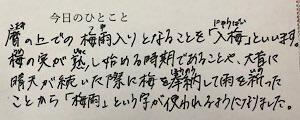 今日のひとこと
暦の上での梅雨入りとなることを「入梅」といいます。
梅の実が熟し始める時期であることや、大昔に
晴天が続いた際に梅を奉納して雨を祈った
ことから「梅雨」という字が使われるようになりました。